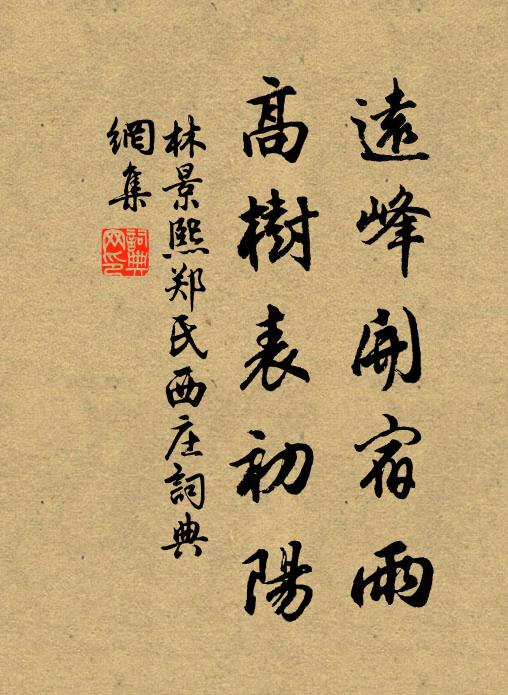 遠峰開宿雨
高樹表初陽
林景熙郑氏西庄詞典
網集
詞典
网印